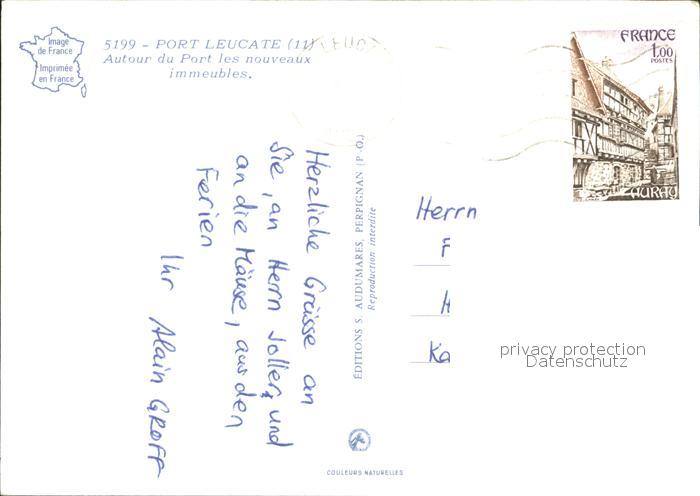 Image
de France
Imprimée
en France
5199 - PORT LEUCATE (11)
Autour du Port les nouveaux
immeubles.
FRANCE
1,00
POSTES
AURAY
Herzliche Grüsse an
Sie, an Herrn Joller, und
an die Mäuse, aus den
Ferien
Ihr Alain GROFF
ÉDITIONS S. AUDUMARES, PERPIGNAN (P.-O.)
Reproduction interdite
Herrn
F
H
Ka
privacy protection
Datenschutz
COULEURS NATURELLES